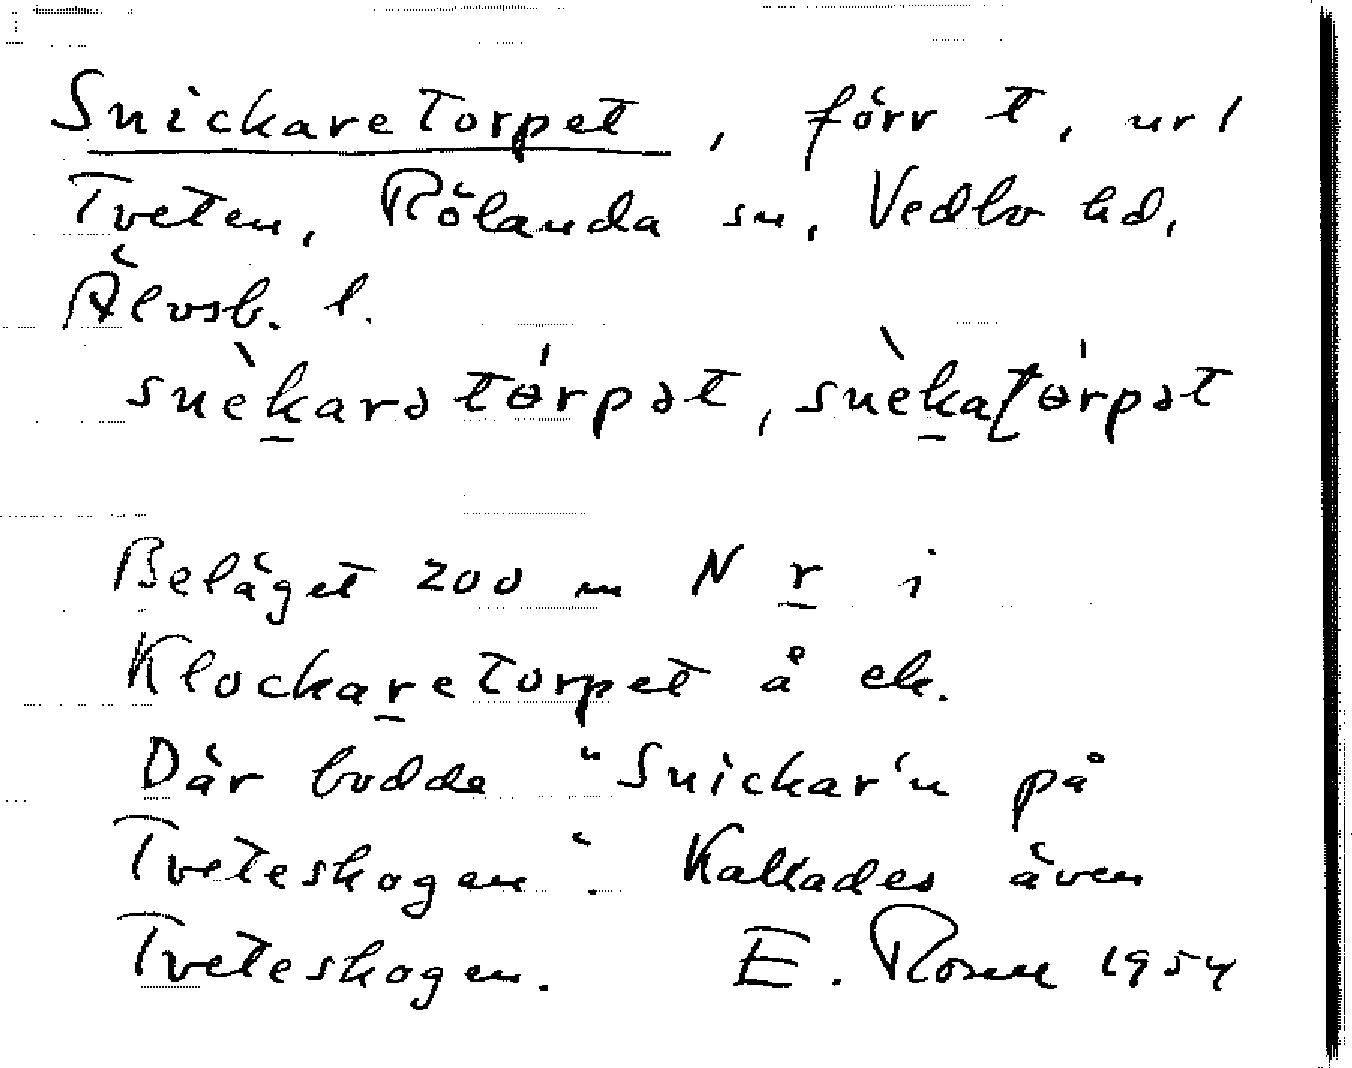 Snickaretorpet, förr t, ur l
Tveten, Rölanda sn, Vedbo hd,
Älvsb. l.
snèkarətórpət, snèkatórpət
Beläget 200 m N r i
Klockaretorpet å ek.
Där bodde "Snickar'n på
Tveteskogen". Kallades även
Tveteskogen. E. Rosell 1954